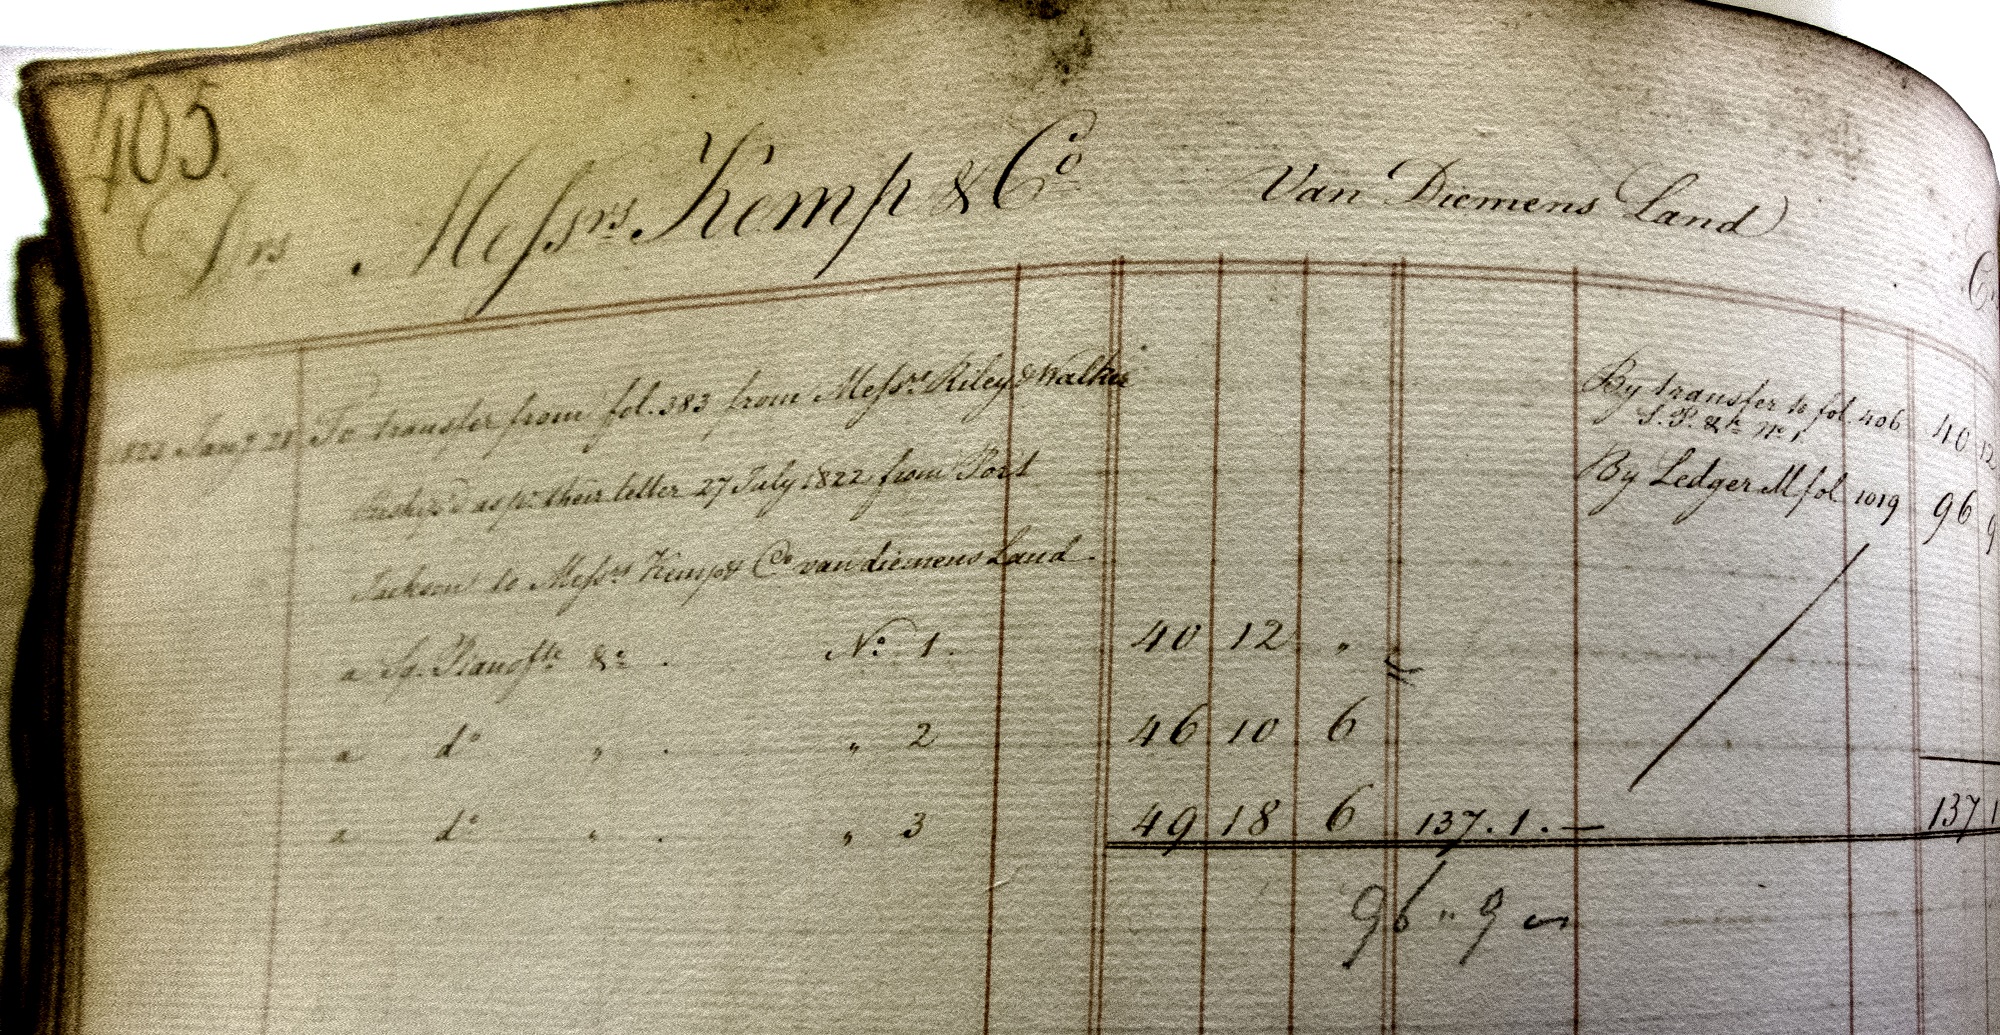 405.
Drs Messrs Kemp & Co Van Diemens Land
1823 Jany 21 To transfer from fol. 383 from Messrs Riley & Walker
as pr. their letter 27 July 1822 from Port
Jackson to Messrs Kemp & Co van diemens Land.
a Sq. Pianofte &c. No. 1. 40 12 "
a do " . " 2 46 10 6
a do " . " 3 49 18 6 137. 1. —
96 " 9 —
By transfer to fol. 406 40 12
S. P. &c No 1
By Ledger M fol 1019 96 9
137 1